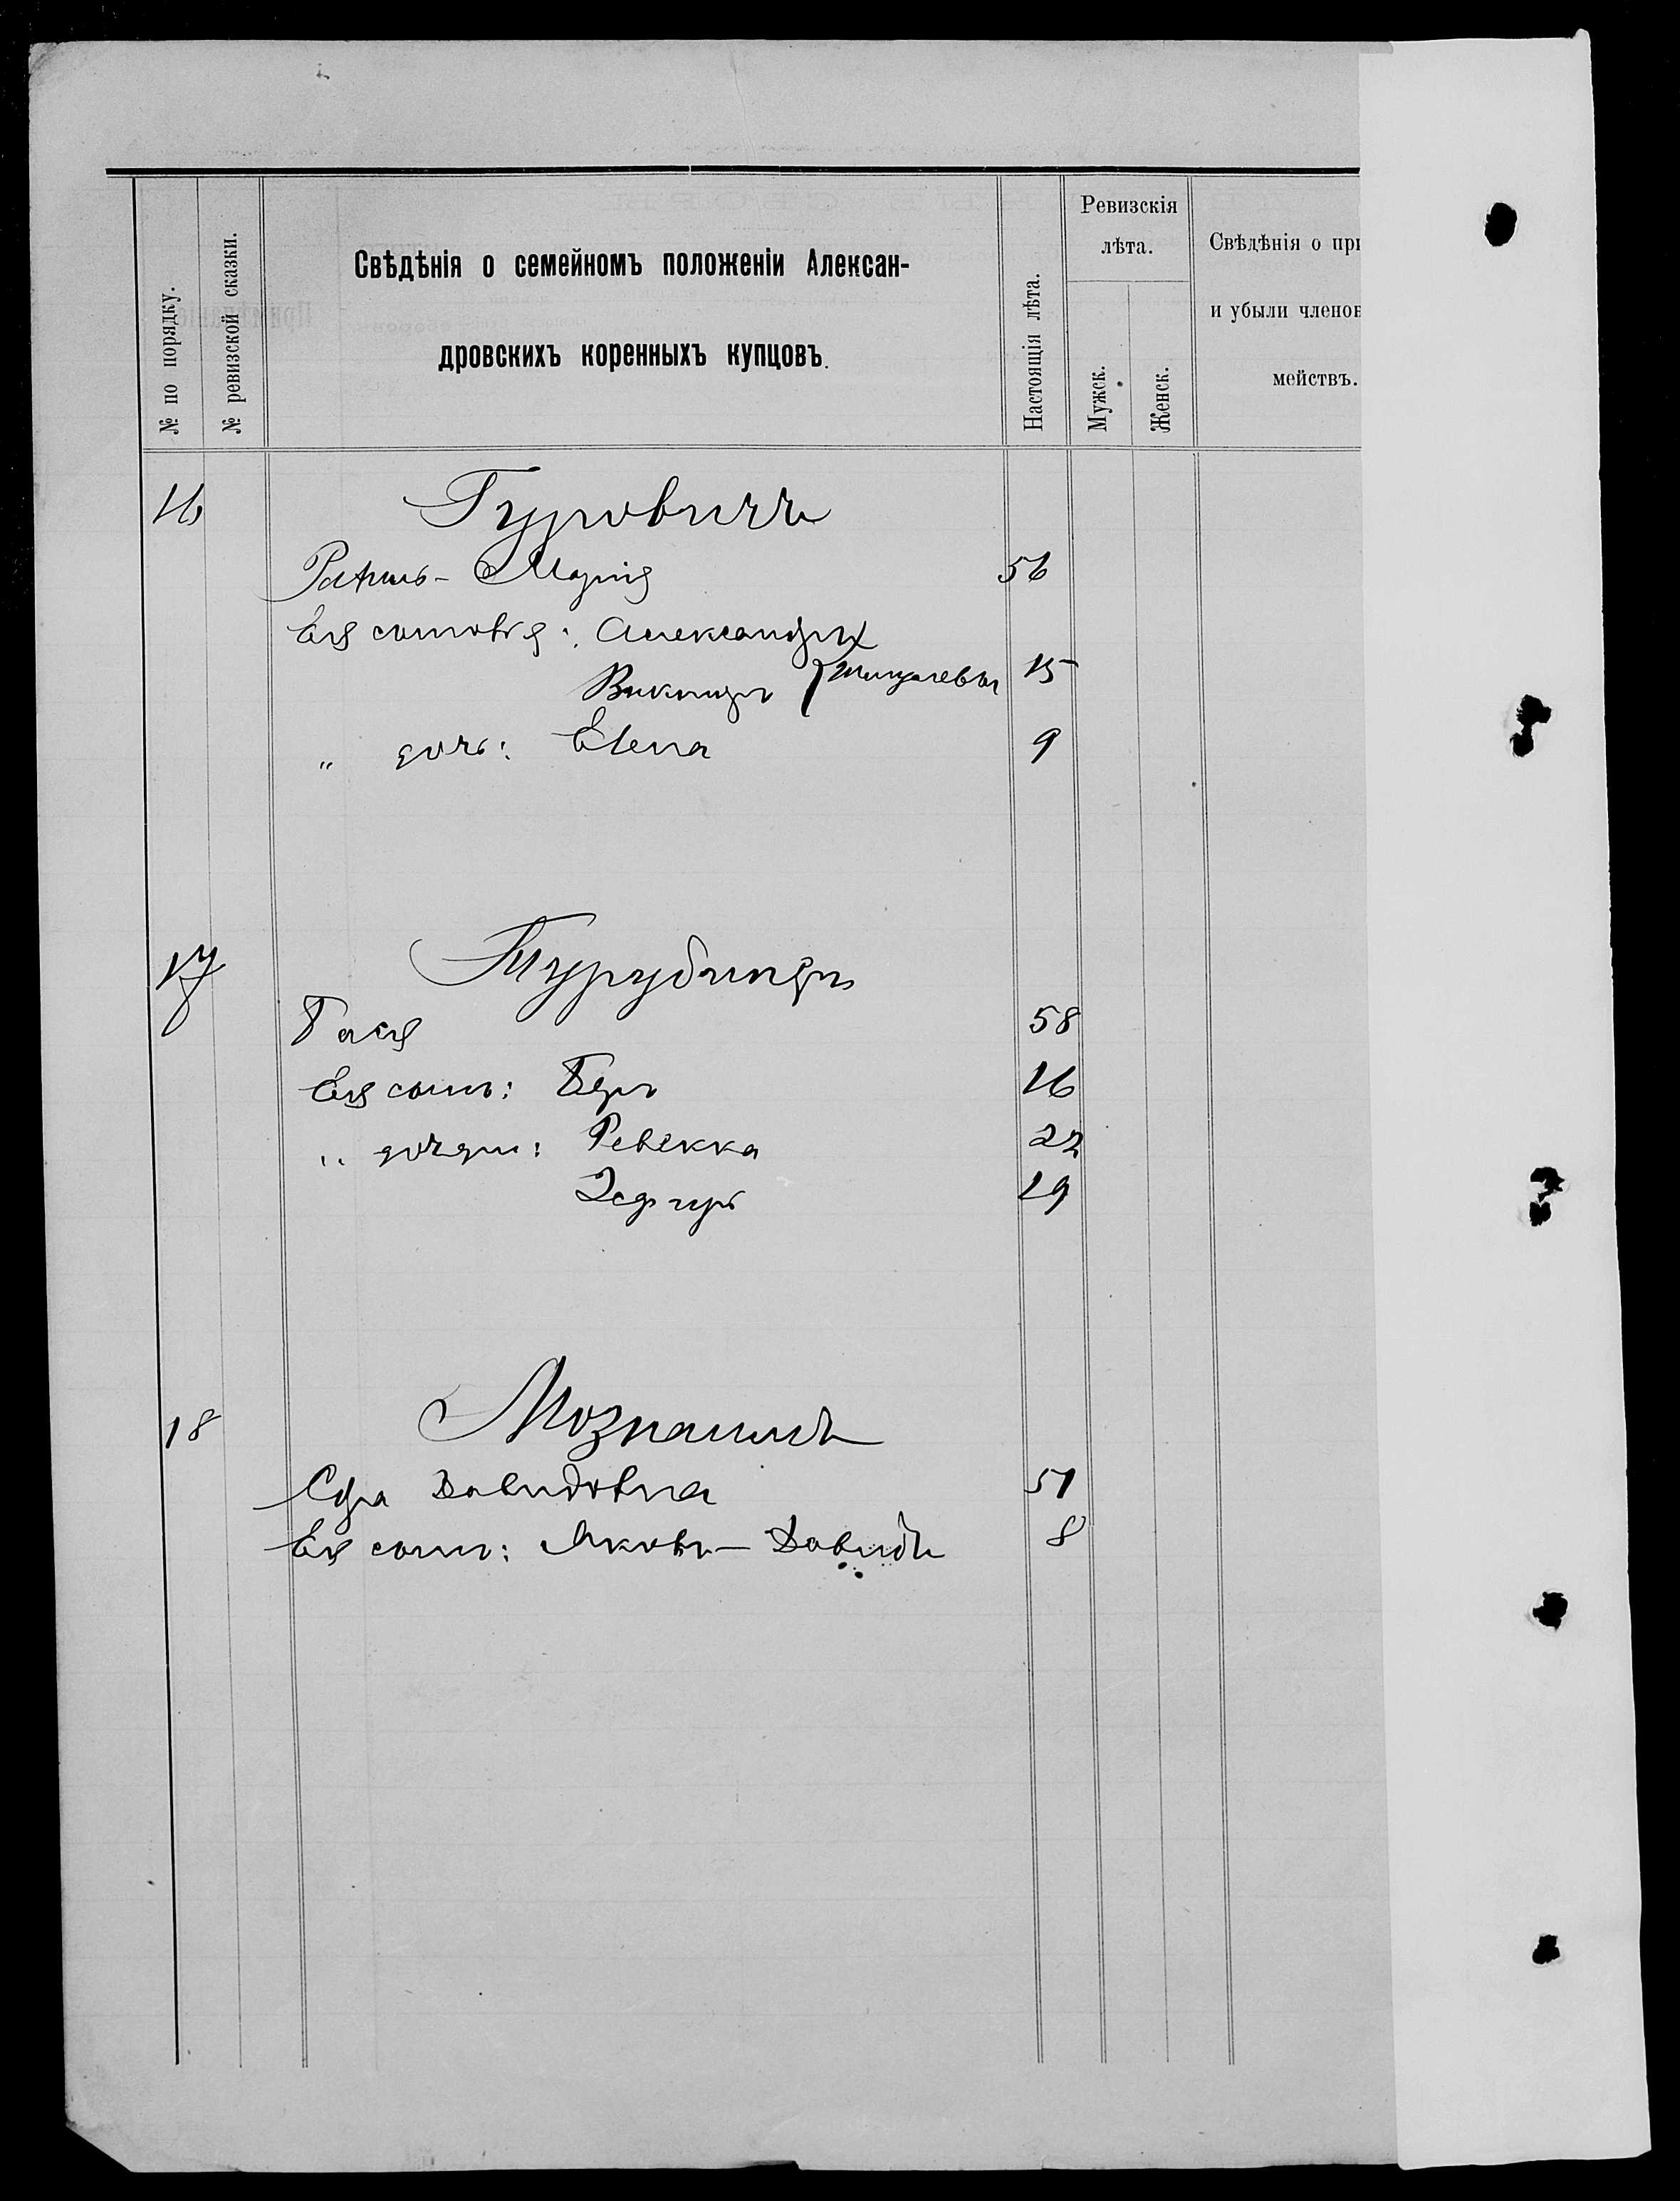 № по порядку.
№ ревизской сказки.
Свѣдѣнія о семейномъ положеніи Алексан-
дровскихъ коренныхъ купцовъ.
Настоящія лѣта.
Ревизскія
лѣта.
Мужск.
Женск.
Свѣдѣнія о при
и убыли членов
мействъ.
16 Гуровичъ
Рахиль - Марія 56
Ея сыновья: Александръ
Викторъ 15
" дочь: Елена 9
17 Турубинеръ
Бася 58
Ея сынъ: Беръ 16
" дочери: Ревекка 22
Эсфирь 19
18 Мознаимъ
Сура Давидовна 51
Ея сынъ: Яковъ - Давидъ 8